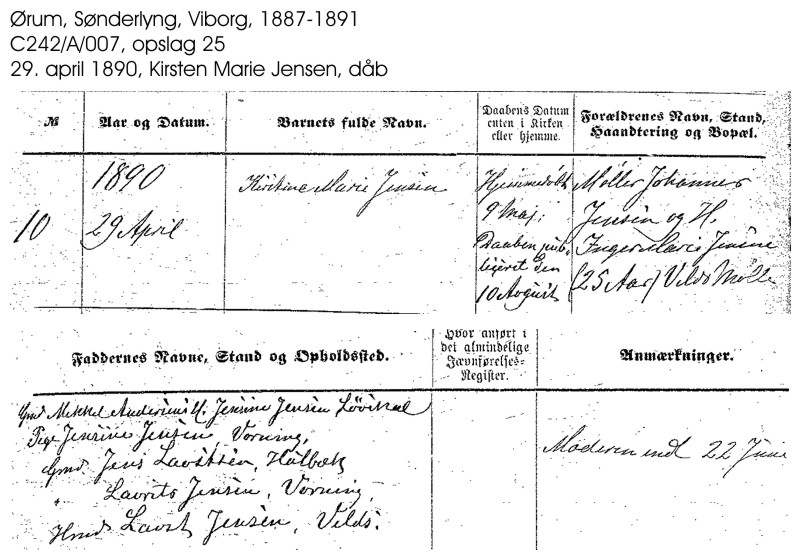 Ørum, Sønderlyng, Viborg, 1887-1891
C242/A/007, opslag 25
29. april 1890, Kirsten Marie Jensen, dåb
№
Aar og Datum.
Barnets fulde Navn.
Daabens Datum
enten i Kirken
eller hjemme.
Forældrenes Navn, Stand,
Haandtering og Bopæl.
10
1890
29 April
Kirstine Marie Jensen
Hjemmedøbt
9 Maj.
Daaben pub-
liceret den
10 August
Møller Johannes
Jensen og H.
Inger Marie Jensine
(25 Aar) Velds Mølle
Faddernes Navne, Stand og Opholdssted.
Hvor anført i
det almindelige
Jævnførelses-
Register.
Anmærkninger.
Gmd Mikkel Andersens H. Jensine Jensen
Pige Jensine Jensen, Vorning,
Gmd Jens Lavritsen, Hålbæk
" Lavrits Jensen, Vorning,
Hmd Lavst Jensen, Velds.
Moderen indl 22 Juni